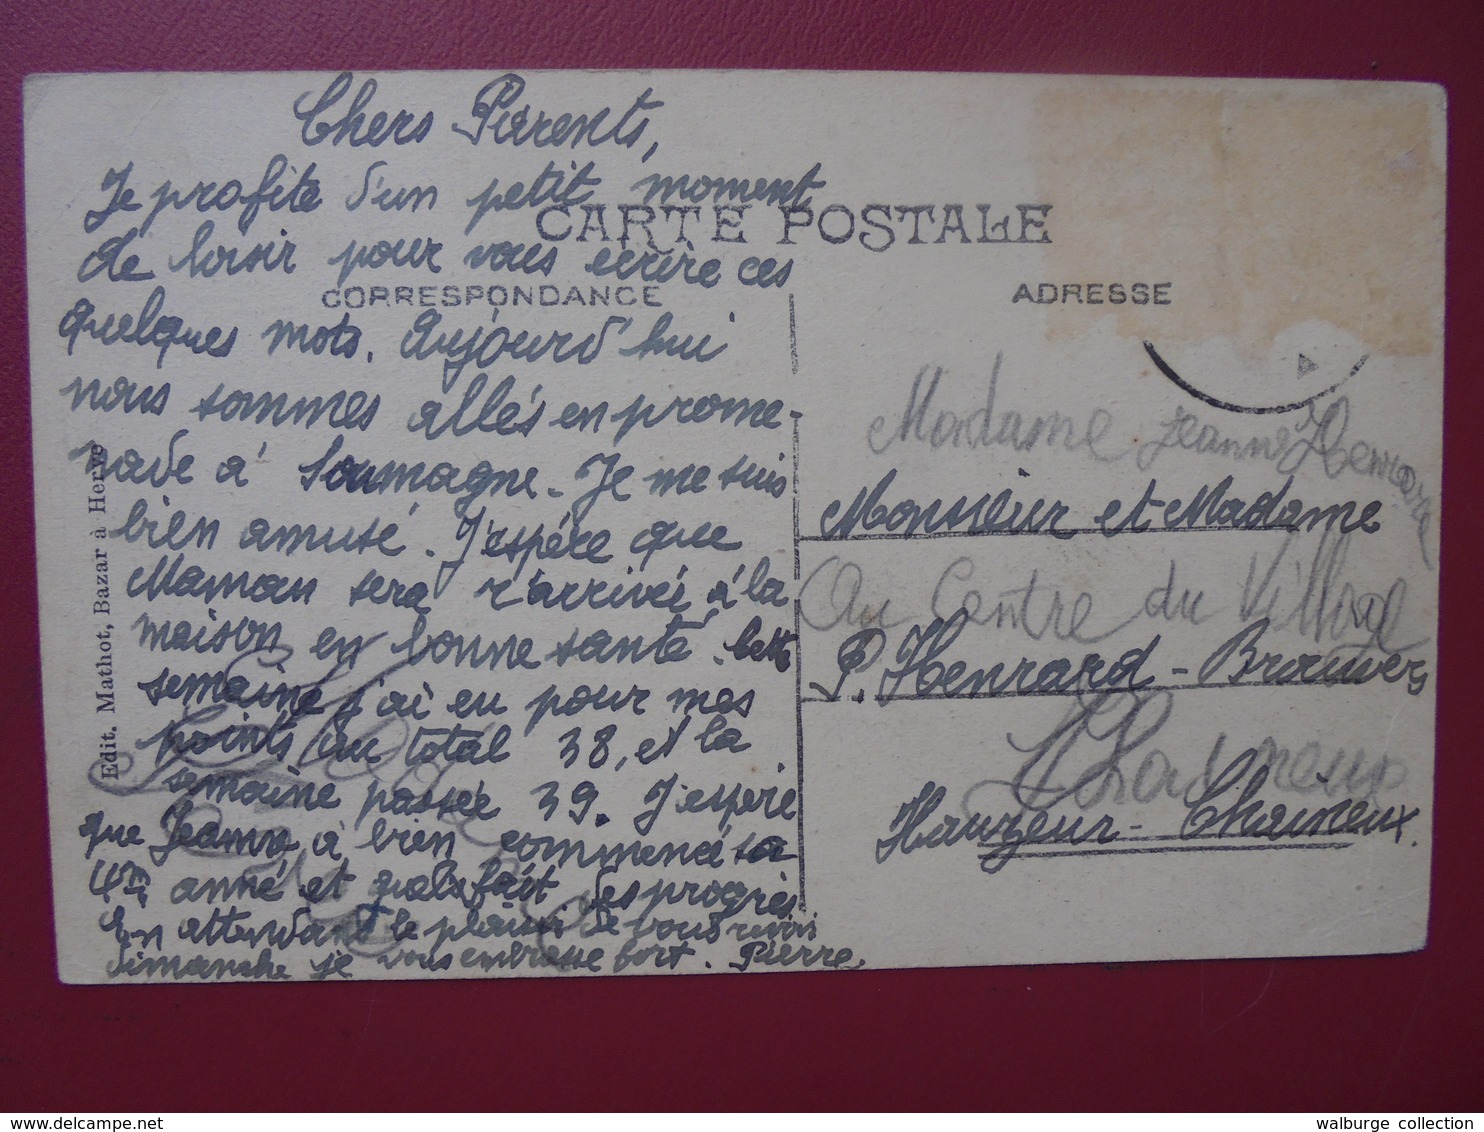 Chers Parents,
Je profite d'un petit moment
CARTE POSTALE
de loisir pour vous écrire ces
CORRESPONDANCE
quelques mots. Aujourd'hui
nous sommes allés en prome-
nade à Soumagne. Je me suis
bien amusé. J'espère que
Maman sera r'arrivéé à la
maison en bonne santé. Cette
semaine j'ai eu pour mes
points un total 38, et la
semaine passée 39. J'espère
que Jeanne à bien commencé sa
4e anné et qu'els fait des progrès
En attendant le plaisir de vous revoir
dimanche je vous embrasse fort. Pierre
Edit. Mathot, Bazar à Herve
ADRESSE
Madame Jeanne Henrard
Monsieur et Madame
Au Centre du Village
P. Henrard - Brouwers
Chaineux
Hauzeur - Chaineux.
walburge collection
www.delcampe.net